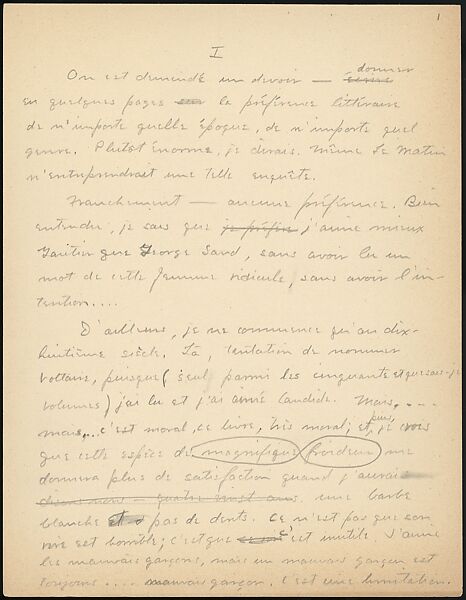 1
I
On est demandé un devoir — donner
en quelques pages la préférence littéraire
de n'importe quelle époque, de n'importe quel
genre. Plutôt énorme, je dirais. Même Le Matin
n'entreprendrait une telle enquête.
Franchement — aucune préférence. Bien
entendu, je sais que je préfère j'aime mieux
Gautier que George Sand, sans avoir lu un
mot de cette femme ridicule, sans avoir l'in-
tention....
D'ailleurs, je ne commence qu'au dix-
huitième siècle. Là, tentation de nommer
Voltaire, puisque (seul parmi les cinquante et que sais-je
volumes) j'ai lu et j'ai aimé Candide. Mais,....
mais,.. c'est moral, ce livre, très moral; et, puis, je crois
que cette espèce de magnifique froideur me
donnera plus de satisfaction quand j'aurais
disons nous — quatre vingt ans. une barbe
blanche et pas de dents. Ce n'est pas que son
rire est horrible; c'est que c'est inutile. J'aime
les mauvais garçons, mais un mauvais garçon est
toujours.... mauvais garçon. C'est une limitation.